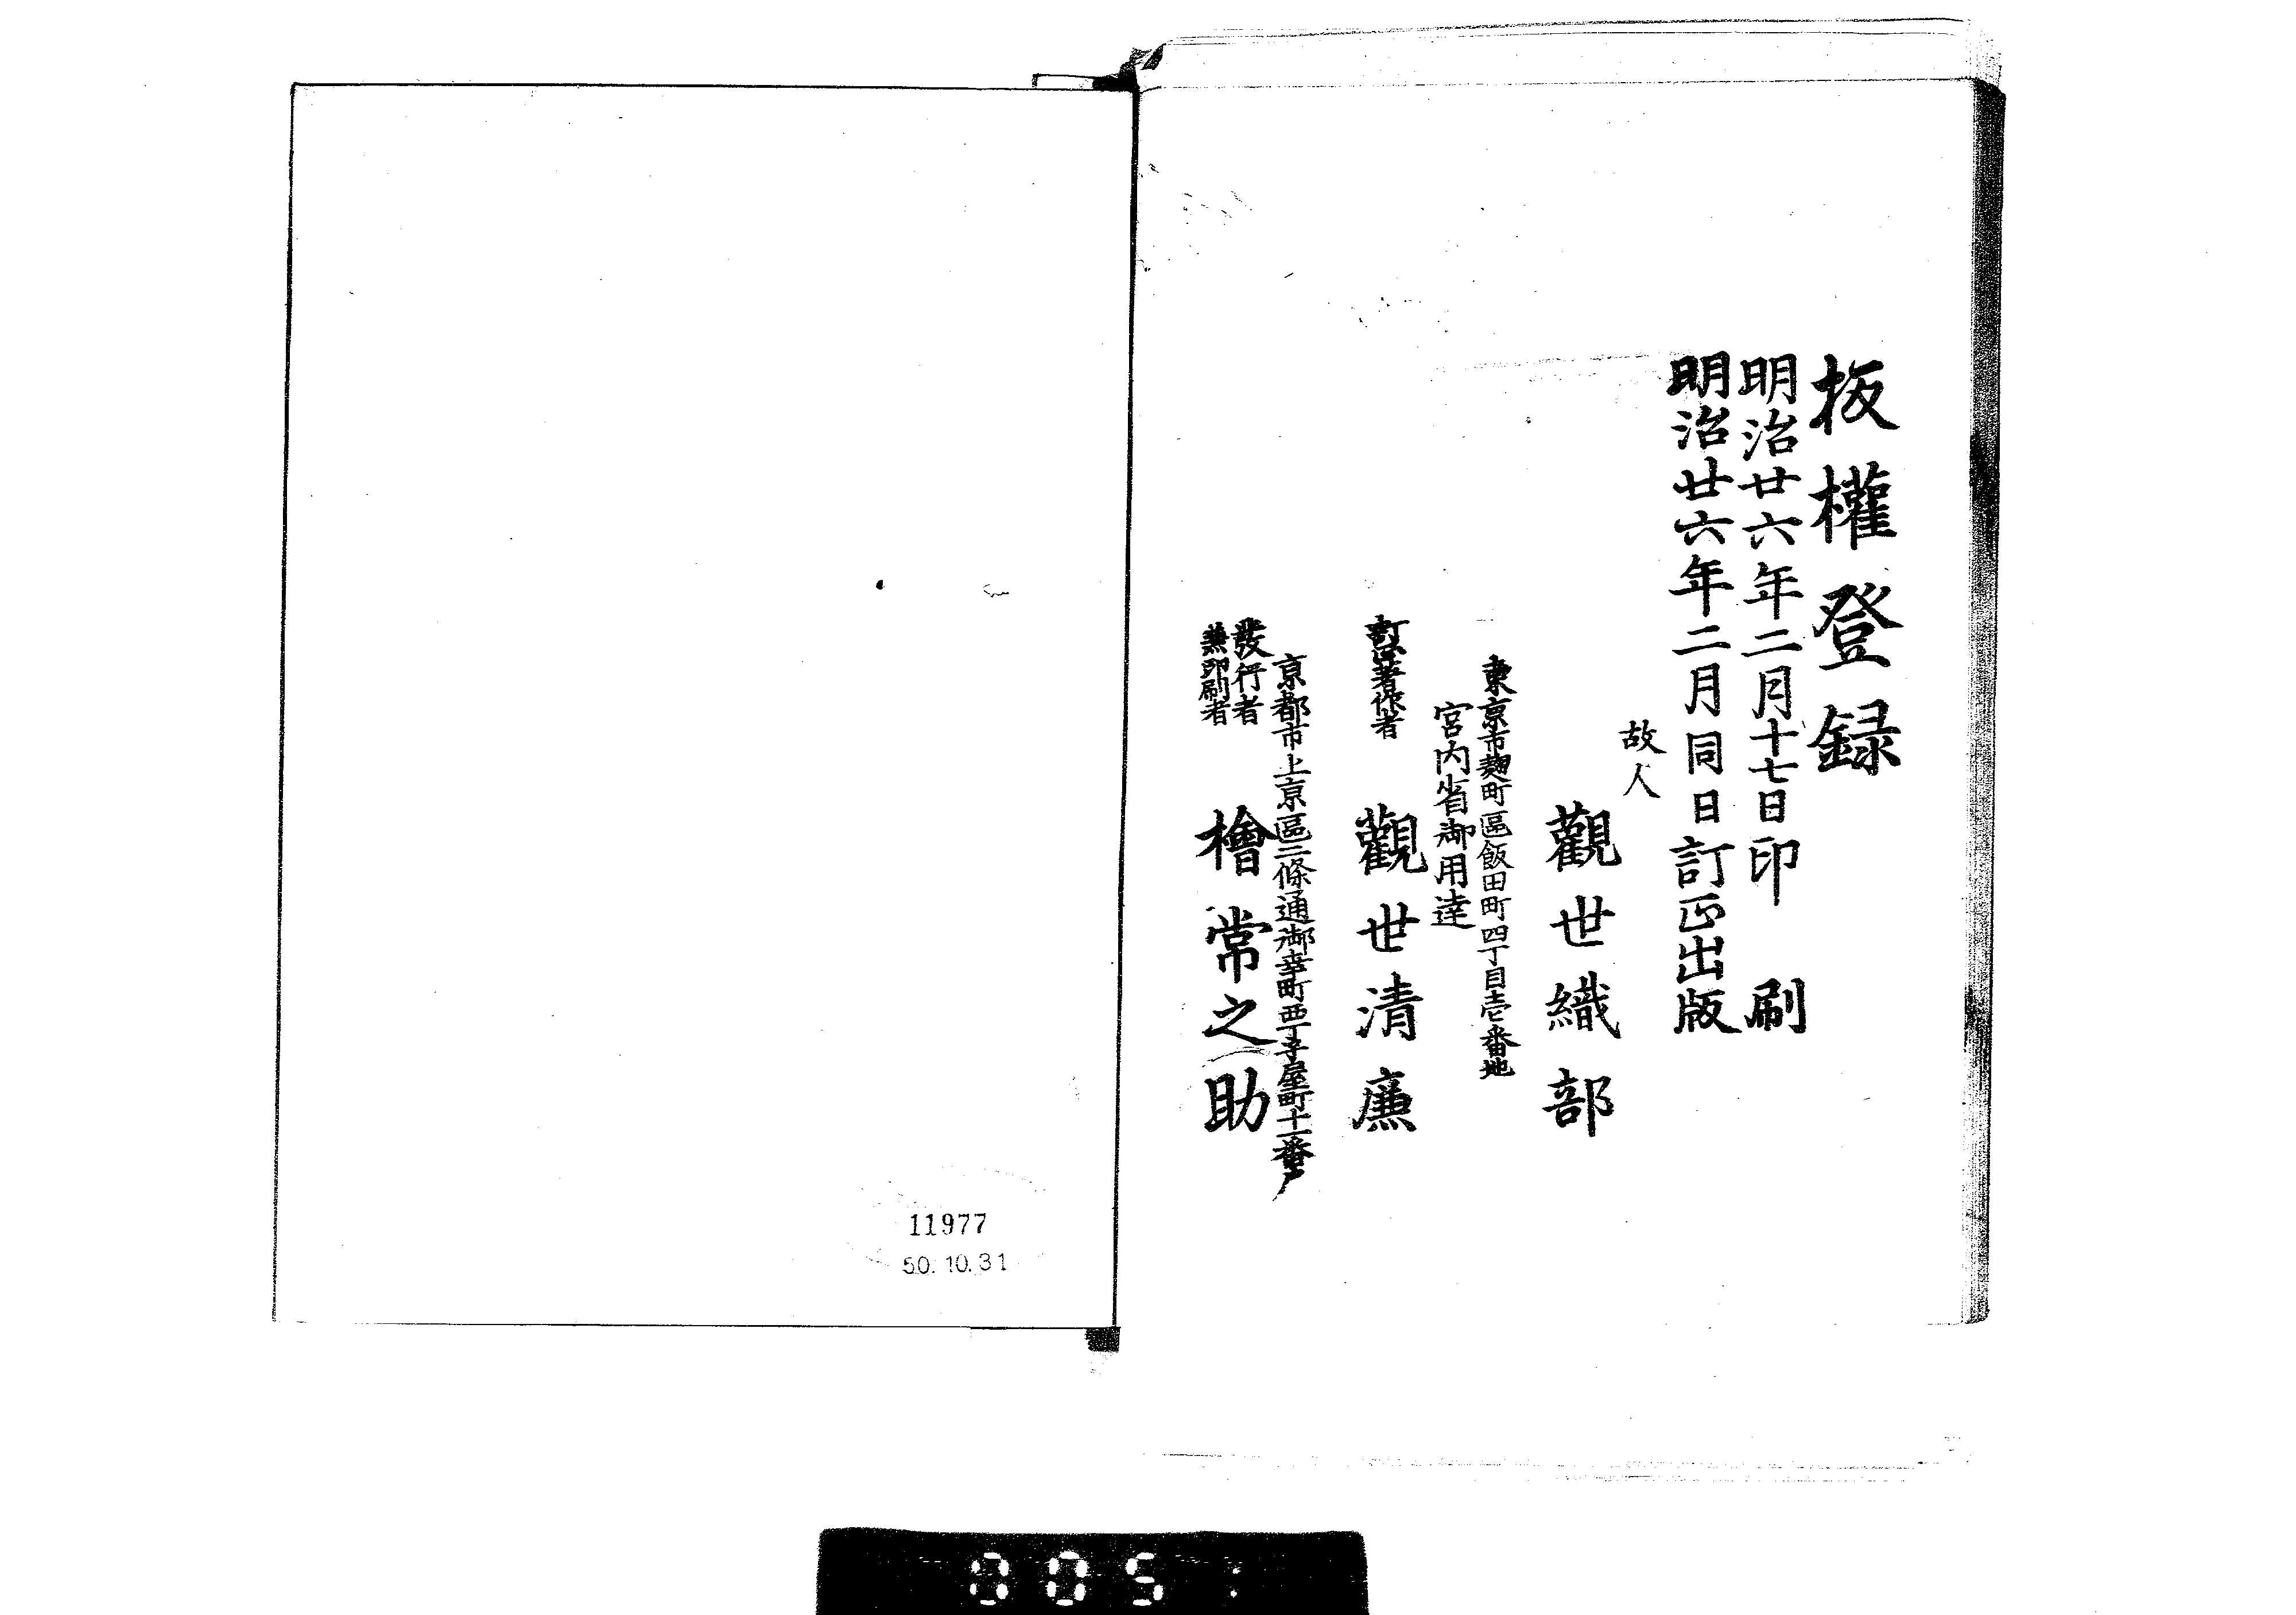 板權登録
明治廿六年二月十七日印刷
明治廿六年二月同日訂正出版
故人
觀世織部
東京市麹町區飯田町四丁目壱番地
宮内省御用達
訂正著作者
觀世清廉
京都市上京區二條通御幸町西丁子屋町十一番戸
發行者
兼印刷者
檜常之助
11977
50.10.31
005